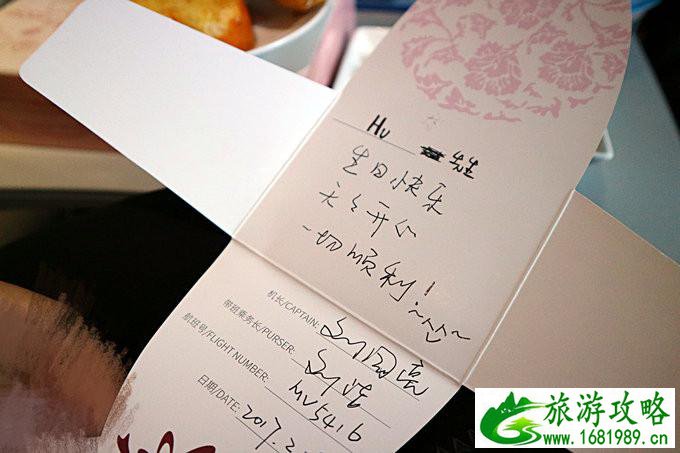 Hu 先生
生日快乐
天天开心
一切顺利!
机长/CAPTAIN: 刘国亮
带班乘务长/PURSER: 刘洁
航班号/FLIGHT NUMBER: MU5416
日期/DATE: 2017.2
旅游攻略
www.1681989.cn